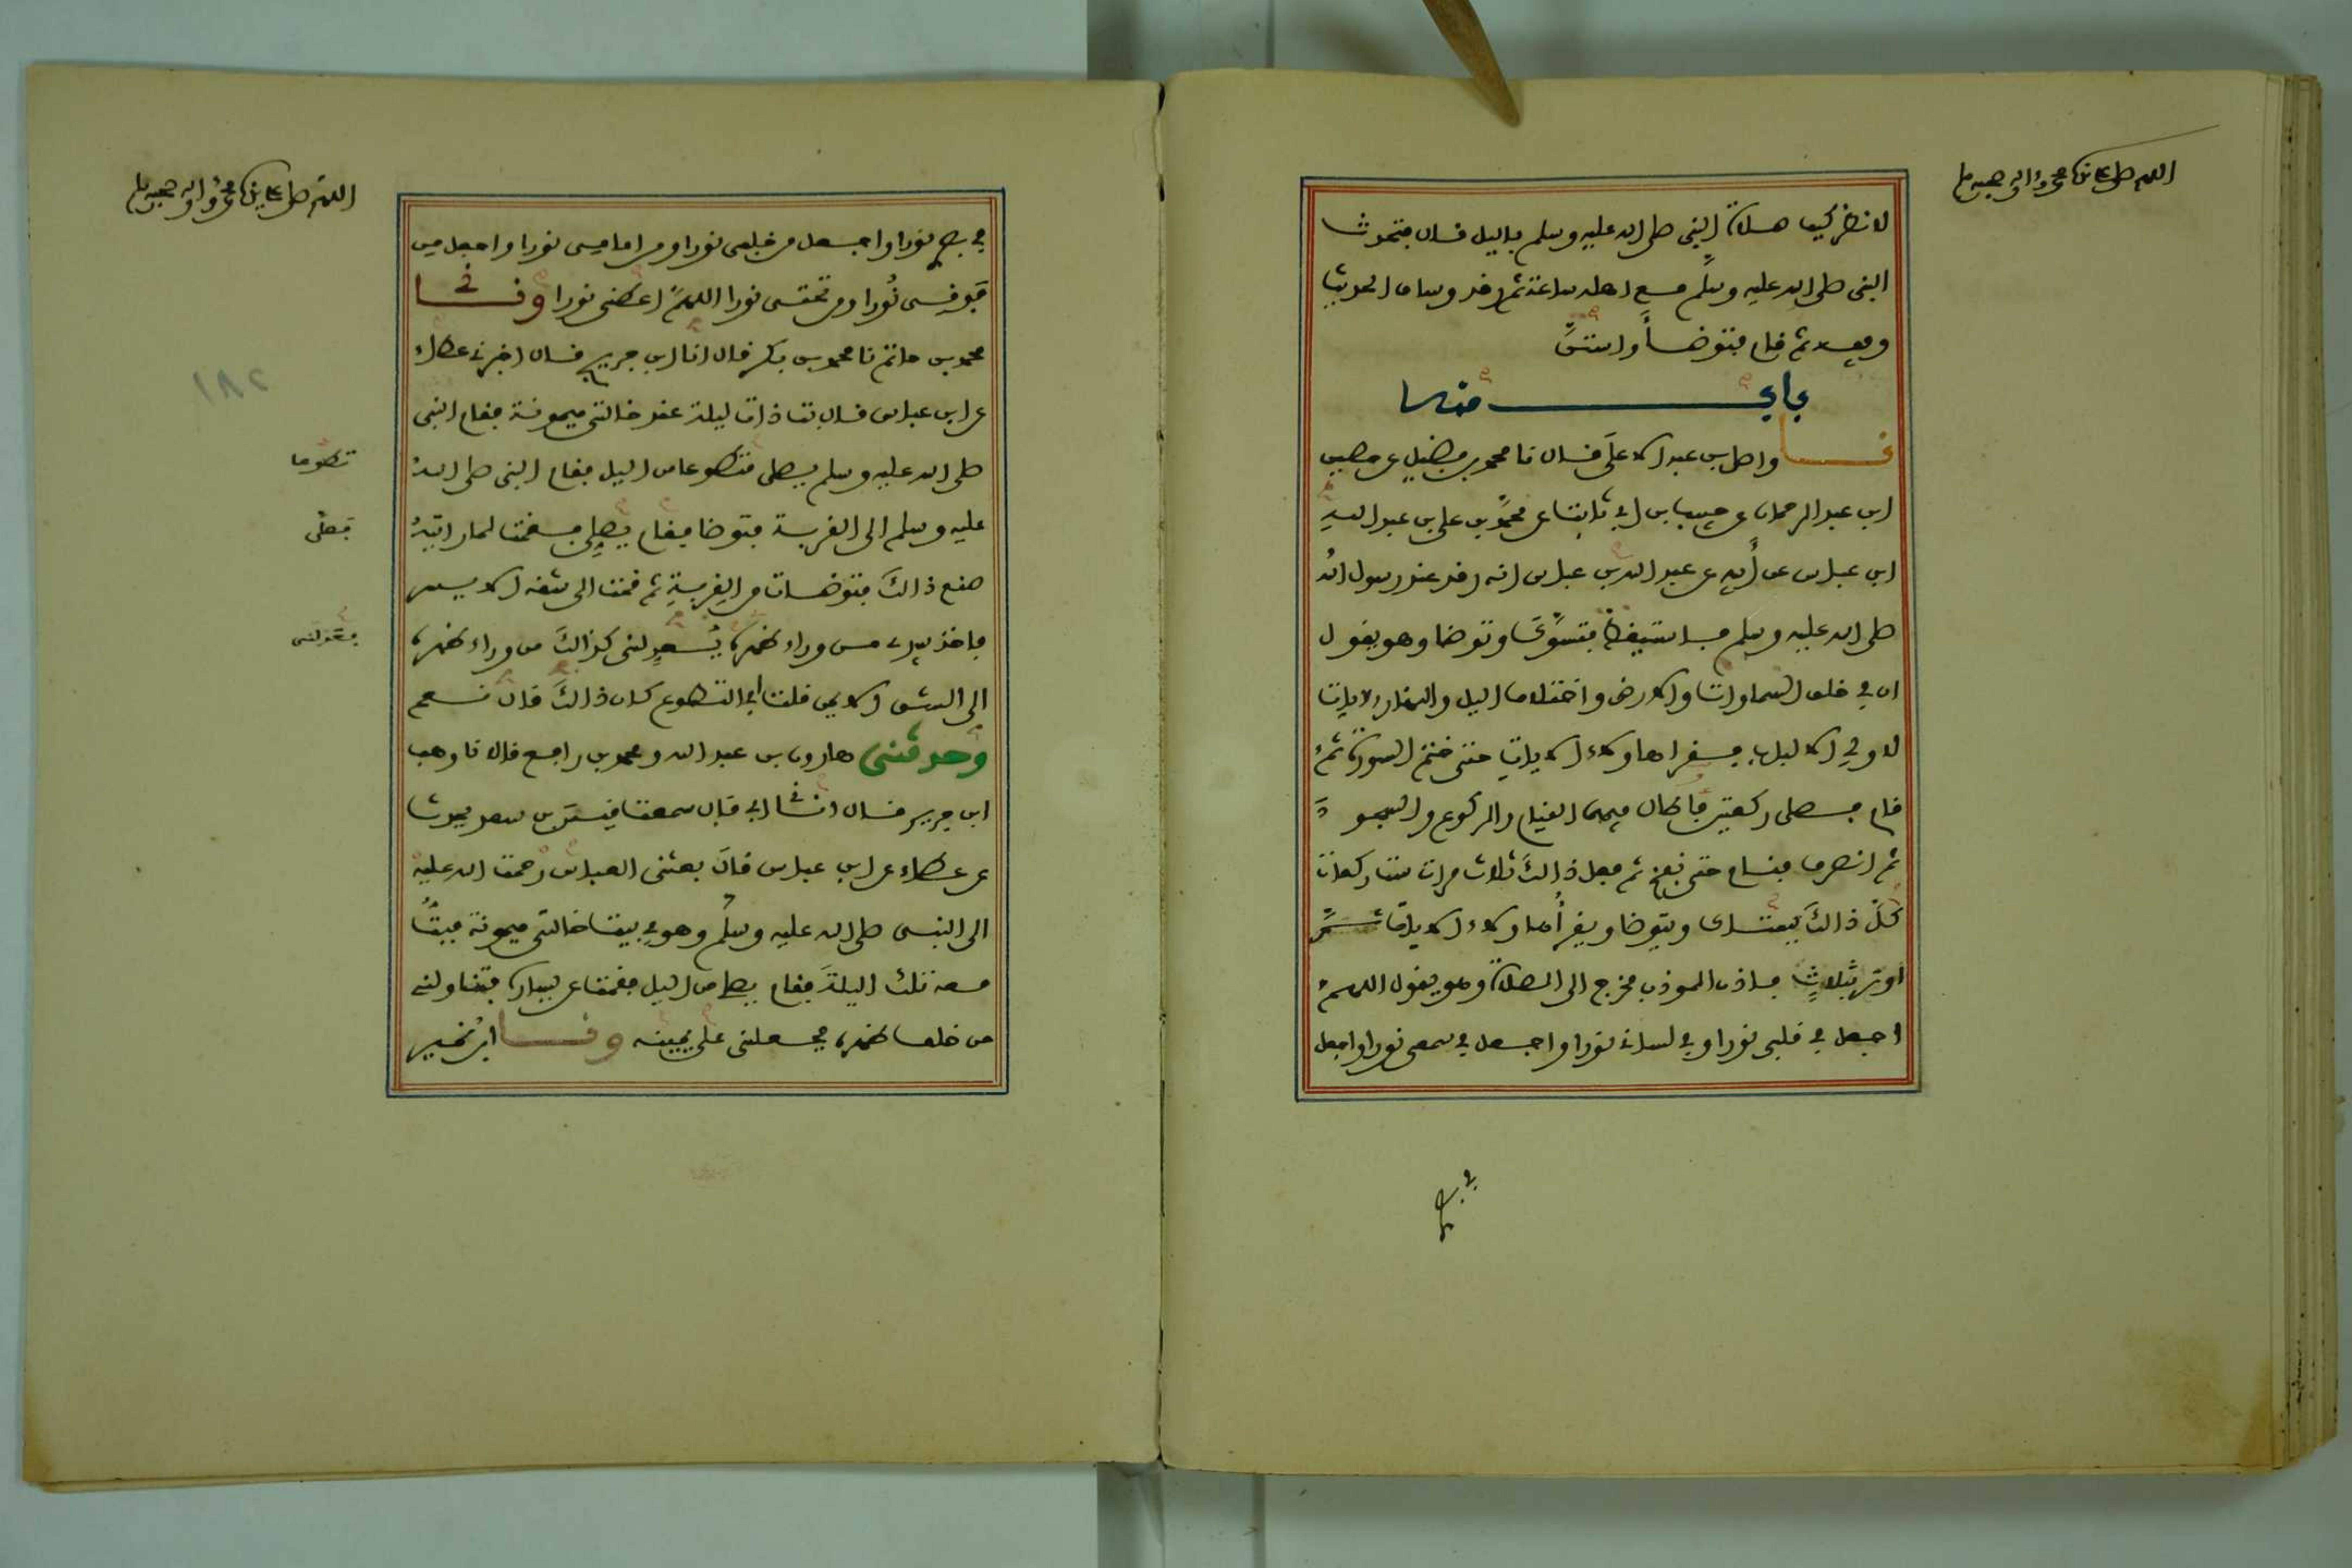 اللهم صل على سيدنا محمد وآله وصحبه وسلم
لانظر كيف صلاة النبي صلى الله عليه وسلم بالليل قال فتحدث
النبي صلى الله عليه وسلم مع اهله ساعة ثم رقد وساق الحديث
وفيه ثم قام فتوضأ واستن
باب منه
نا واصل بن عبد الاعلى قال نا محمد بن فضيل عن حصين
ابن عبد الرحمان عن حبيب بن ابي ثابت عن محمد بن علي بن عبد الله
ابن عباس عن أبيه عن عبد الله بن عباس انه رقد عند رسول الله
صلى الله عليه وسلم فاستيقظ فتسوك وتوضا وهو يقول
ان في خلق السماوات والارض واختلاف اليل والنهار لايات
لاولي الالباب فقرا هاولاء الايات حتى ختم السورة ثم
قام فصلى ركعتين فاطال فيهما القيام والركوع والسجود
ثم انصرف فنام حتى نفخ ثم فعل ذالك ثلاث مرات ست ركعات
كل ذالك يستاك ويتوضا ويقرأ هاولاء الايات ثم
اوتر بثلاث فاذن الموذن فخرج الى الصلاة وهو يقول اللهم
اجعل في قلبي نورا وفي لساني نورا واجعل في سمعي نورا واجعل
في بصري
اللهم صل على سيدنا محمد وآله وصحبه وسلم
في بصري نورا واجعل من خلفي نورا ومن امامي نورا واجعل من
فوقي نورا ومن تحتي نورا اللهم اعطني نورا وني
محمد بن حاتم نا محمد بن بكر قال انا ابن جريج قال اخبرني عطاء
عن ابن عباس قال بت ذات ليلة عند خالتي ميمونة فقام النبي
صلى الله عليه وسلم يصلي متطوعا من اليل فقام النبي صلى الله
عليه وسلم الى القربة فتوضا فقام يصلي فقمت لما رايته
صنع ذالك فتوضات من القربة ثم قمت الى شقه الايسر
فاخذ بيدي من وراء ظهره يعدلني كذالك من وراء ظهره
الى الشق الايمن قلت افي التطوع كان ذالك قال نعم
وحدثني هارون بن عبد الله ومحمد بن رافع قالا نا وهب
ابن جرير قال اني ابي قال سمعت قيس بن سعد يحدث
عن عطاء عن ابن عباس قال بعثني العباس رحمت الله عليه
الى النبي صلى الله عليه وسلم وهو في بيت خالتي ميمونة فبت
معه تلك اليلة فقام يصلي من اليل فقمت عن يساره فتناولني
من خلف ظهره فجعلني على يمينه ونا ابن نمير
تطوعا
فصلى
فعدلني
١٨٢